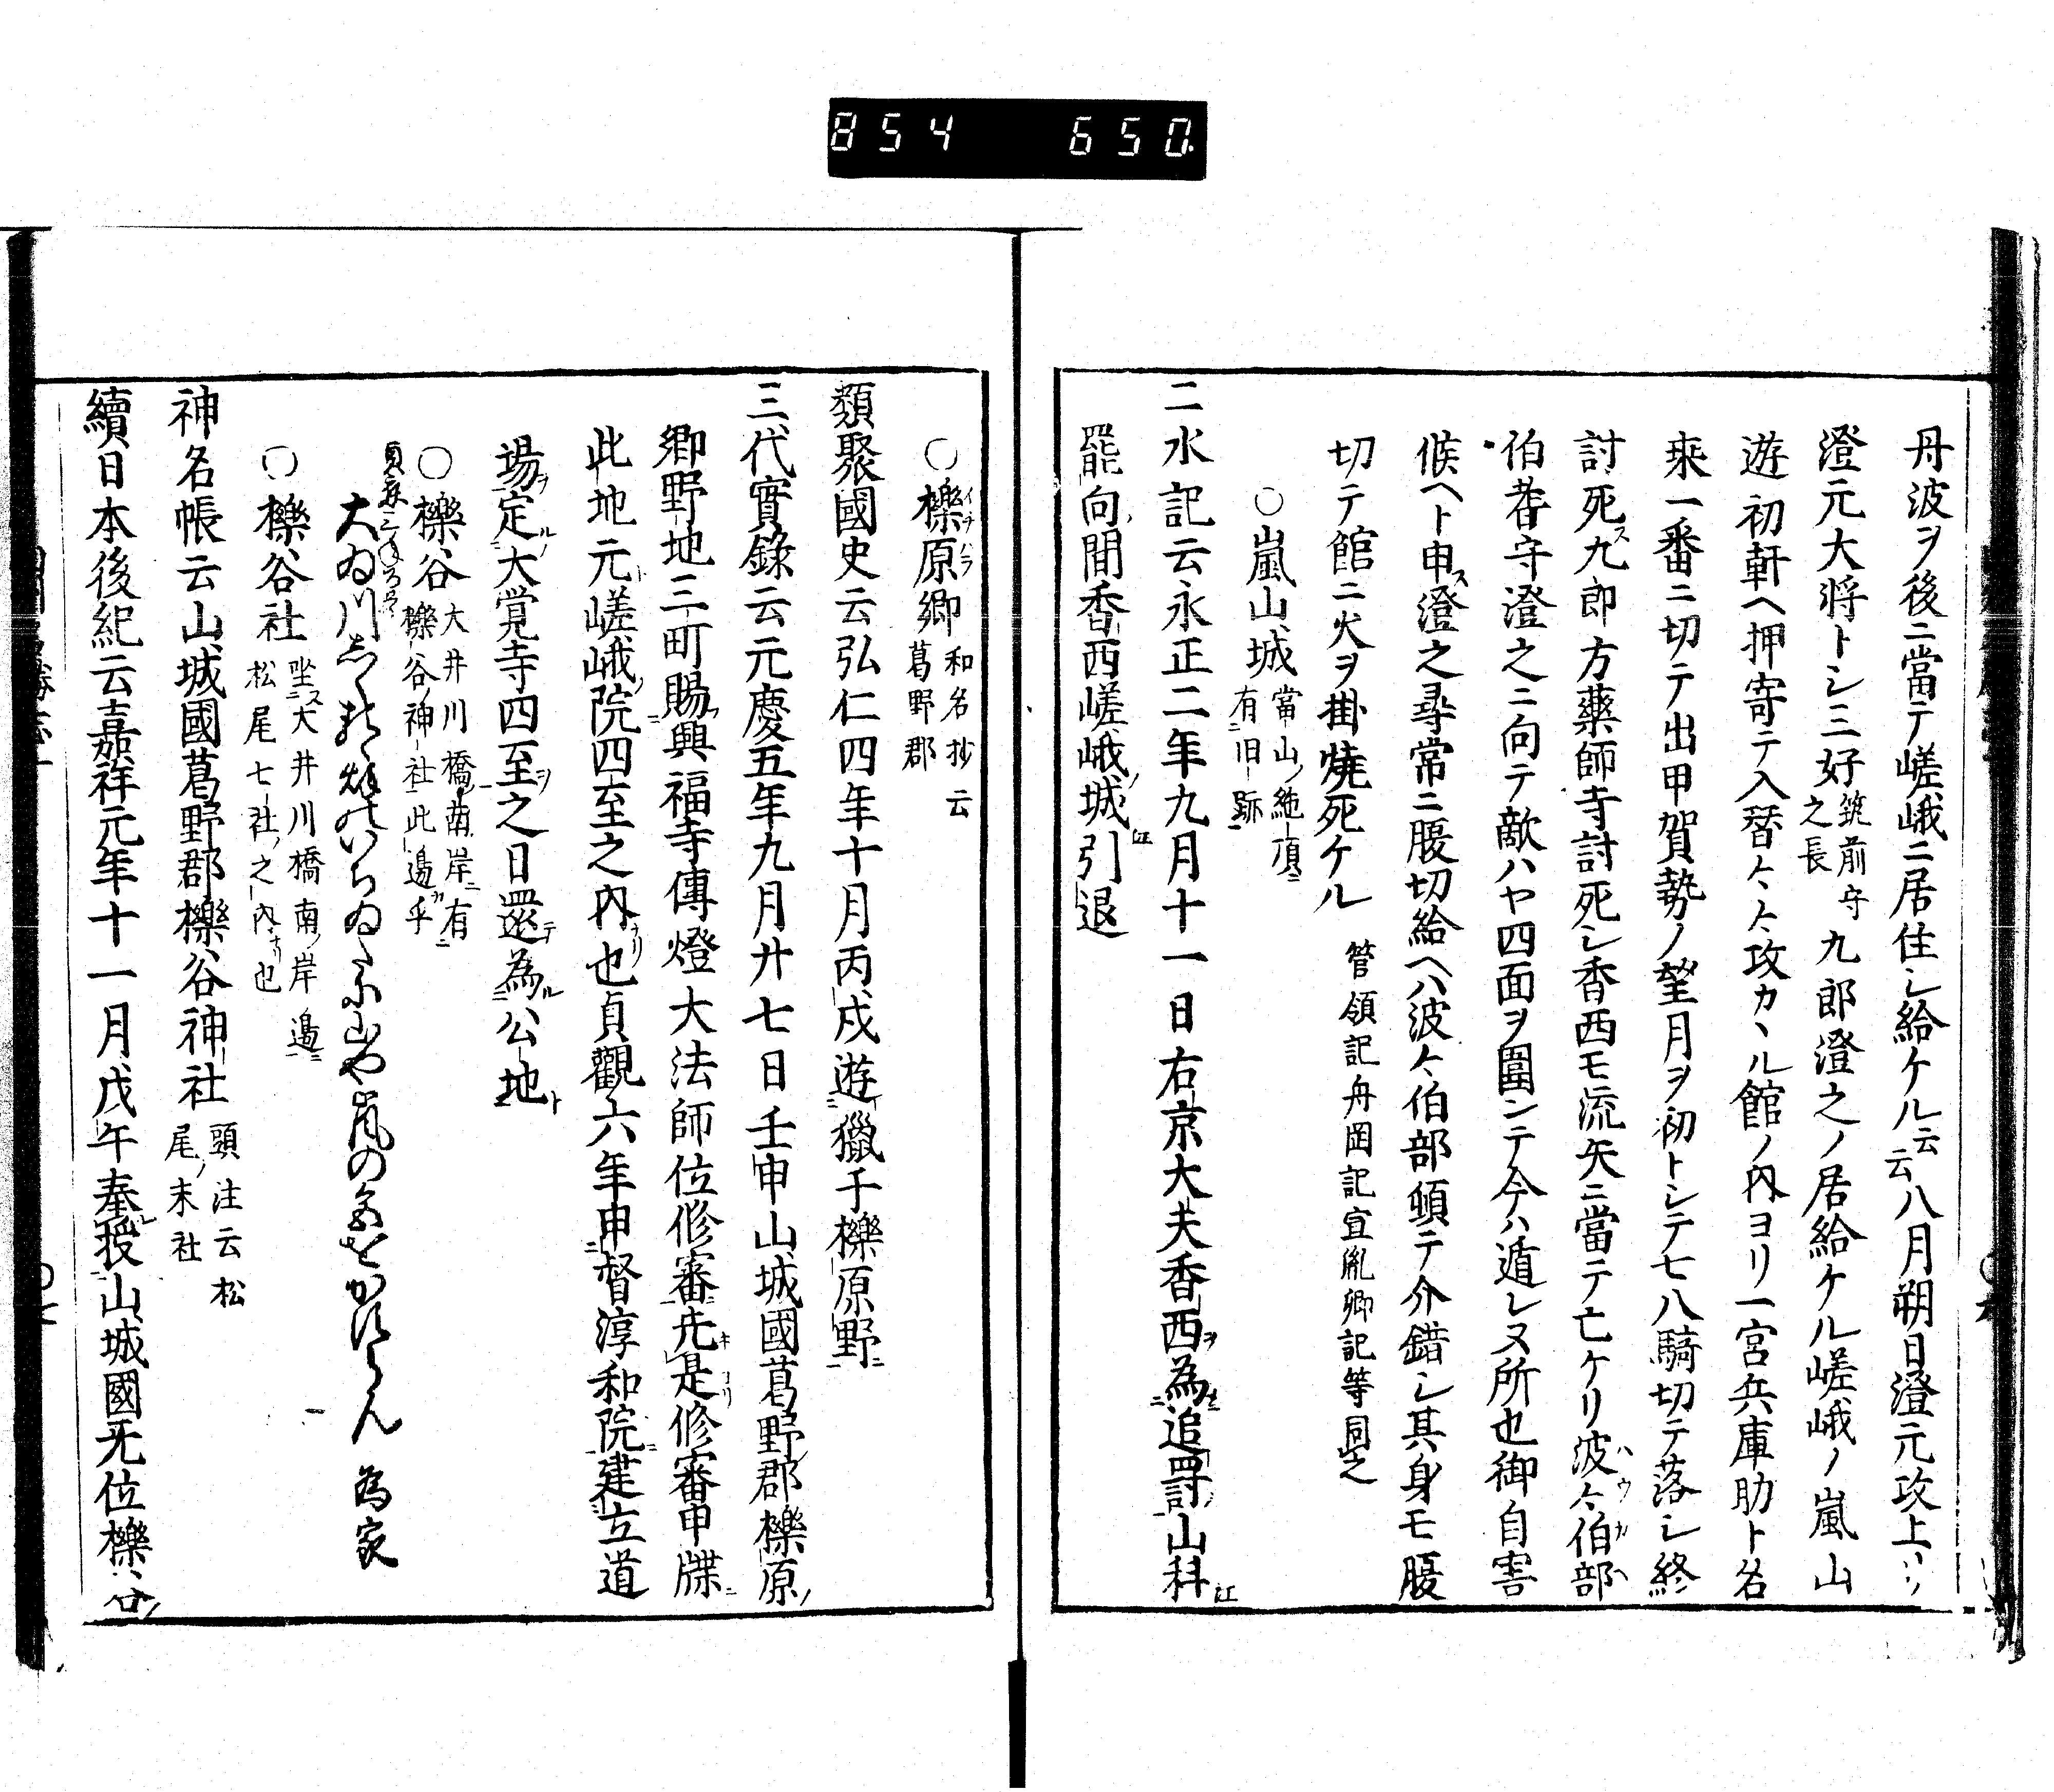 854 650
丹波ヲ後ニ當テ嵯峨ニ居住シ給ケル云云八月朔日澄元攻上リ
澄元大将トシ三好筑前守之長九郎澄之ノ居給ケル嵯峨ノ嵐山
遊初軒ヘ押寄テ入替々々攻カヽル館ノ内ヨリ一宮兵庫助ト名
乗一番ニ切テ出甲賀勢ノ望月ヲ初トシテ七八騎切テ落シ終
討死ス九郎方藥師寺討死シ香西モ流矢ニ當テ亡ケリ波々伯部
伯耆守澄之ニ向テ敵ハヤ四面ヲ圍ンテ今ハ遁レヌ所也御自害
候ヘト申ス澄之尋常ニ腹切給ヘハ波々伯部頓テ介錯シ其身モ腹
切テ館ニ火ヲ掛燒死ケル 管領記舟岡記宣胤卿記等同之
○嵐山城 當山ノ絶頂ニ有旧跡
二水記云永正二年九月十一日右京大夫香西ヲ為追罸山科江
罷向間香西嵯峨ノ城江引退
○櫟原郷 和名抄云葛野郡
類聚國史云弘仁四年十月丙戌遊獵于櫟原野
三代實錄云元慶五年九月廿七日壬申山城國葛野郡櫟原ノ
郷野地三町賜興福寺傳燈大法師位修審先是修審申牒
此地元嵯峨院四至之内也貞觀六年申督淳和院建立道
場定大覚寺四至之日還為公地
○櫟谷 大井川橋南岸ニ有櫟谷神社此邊カ乎
大ゐ川 山や嵐の 為家
○櫟谷社 坐ス大井川橋南ノ岸邊ニ松尾七社ノ之内ナリ也
神名帳云山城國葛野郡櫟谷神社 頭注云松尾ノ末社
續日本後紀云嘉祥元年十一月戊午奉授山城國无位櫟谷ノ